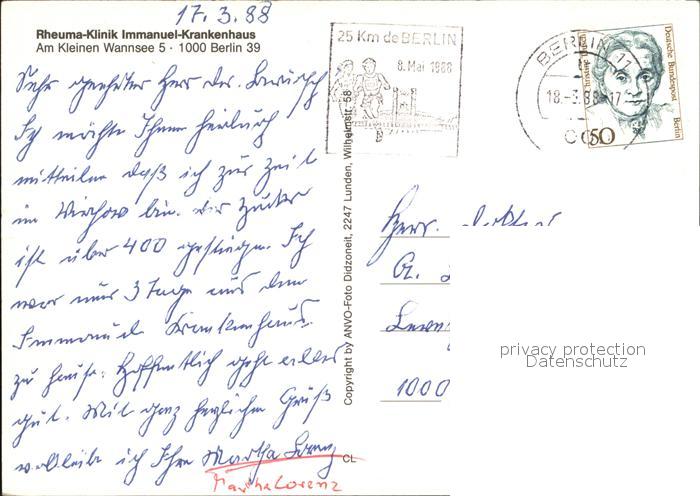 17.3.88
Rheuma-Klinik Immanuel-Krankenhaus
Am Kleinen Wannsee 5 · 1000 Berlin 39
Sehr geehrter Herr
Ich möchte Ihnen hierdurch
mitteilen daß ich zur Zeit
im Virchow bin. der Zucker
ist über 400 gestiegen. Ich
war nur 3 Tage aus dem
Immanuel Krankenhaus
zu hause. Hoffentlich geht alles
gut. Mit ganz herzlichem Gruß
verbleibe ich Ihre Martha Lorenz
Martha Lorenz
CL
Copyright by ANVO-Foto Didzoneit, 2247 Lunden, Wilhelmstr. 58
25 Km de BERLIN
8. Mai 1988
BERLIN 11
18.-3.88-17
Deutsche Bundespost
Berlin
50
Herr. Doktor
G.
1000
privacy protection
Datenschutz